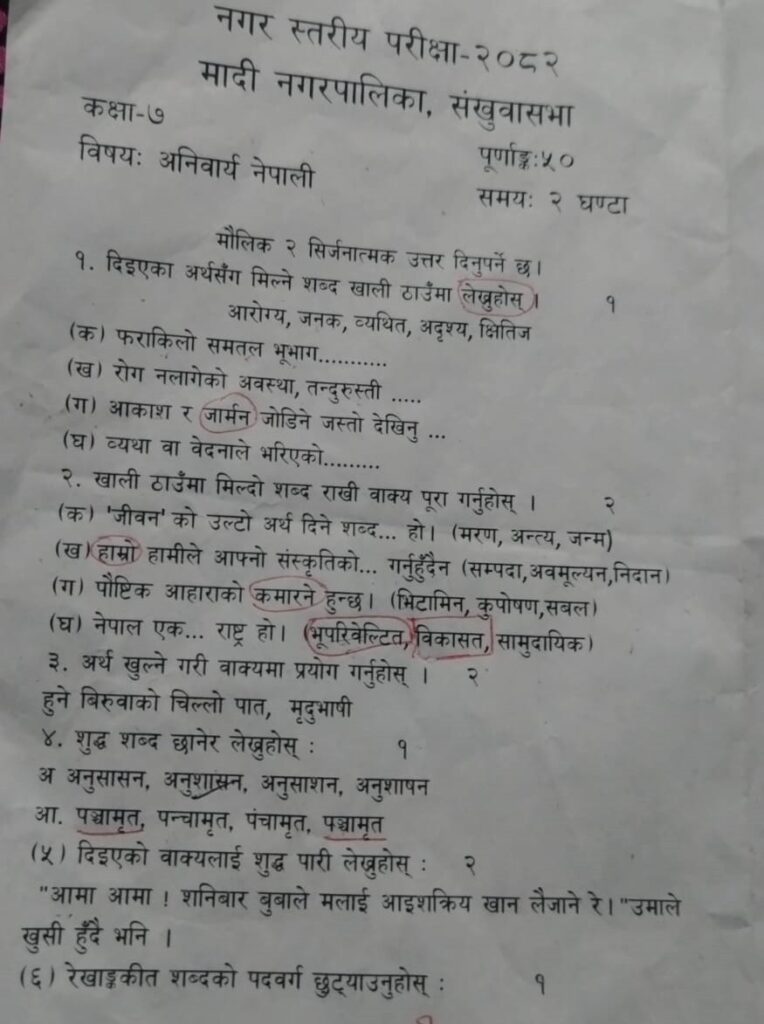 नगर स्तरीय परीक्षा-२०८२
मादी नगरपालिका, संखुवासभा
कक्षा-७
पूर्णाङ्क:५०
विषय: अनिवार्य नेपाली
समय: २ घण्टा
मौलिक २ सिर्जनात्मक उत्तर दिनुपर्ने छ।
१. दिइएका अर्थसँग मिल्ने शब्द खाली ठाउँमा लेख्नुहोस् । १
आरोग्य, जनक, व्यथित, अदृश्य, क्षितिज
(क) फराकिलो समतल भूभाग...........
(ख) रोग नलागेको अवस्था, तन्दुरुस्ती .....
(ग) आकाश र जार्मन जोडिने जस्तो देखिनु ...
(घ) व्यथा वा वेदनाले भरिएको.........
२. खाली ठाउँमा मिल्दो शब्द राखी वाक्य पूरा गर्नुहोस् । २
(क) 'जीवन' को उल्टो अर्थ दिने शब्द... हो। (मरण, अन्त्य, जन्म)
(ख) हाम्रो हामीले आफ्नो संस्कृतिको... गर्नुहुँदैन (सम्पदा,अवमूल्यन,निदान)
(ग) पौष्टिक आहाराको कमारने हुन्छ। (भिटामिन, कुपोषण,सबल)
(घ) नेपाल एक... राष्ट्र हो। (भूपरिवेल्टित, विकासत, सामुदायिक)
३. अर्थ खुल्ने गरी वाक्यमा प्रयोग गर्नुहोस् । २
हुने बिरुवाको चिल्लो पात, मृदुभाषी
४. शुद्ध शब्द छानेर लेख्नुहोस् : १
अ अनुसासन, अनुशासन, अनुसाशन, अनुशाषन
आ. पञ्चामृत, पन्चामृत, पंचामृत, पञ्चामृत
(५) दिइएको वाक्यलाई शुद्ध पारी लेख्नुहोस् : २
"आमा आमा ! शनिबार बुबाले मलाई आइशक्रिय खान लैजाने रे। "उमाले
खुसी हुँदै भनि ।
(६) रेखाङ्कीत शब्दको पदवर्ग छुट्याउनुहोस् : १